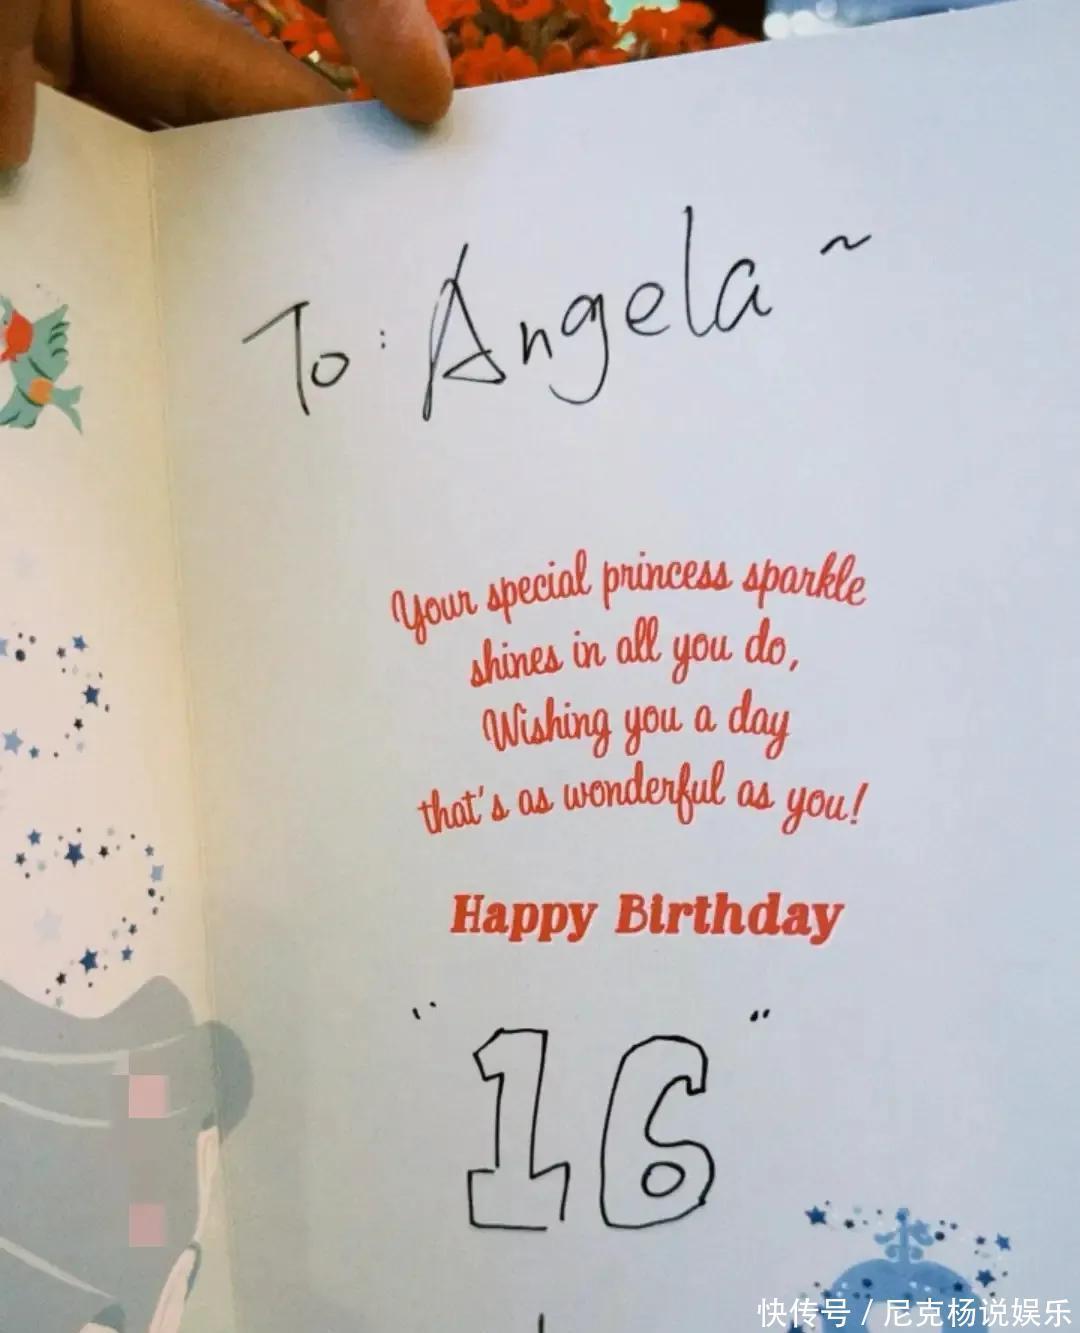 To: Angela ~
Your special princess sparkle
shines in all you do,
Wishing you a day
that's as wonderful as you!
Happy Birthday
"16"
快传号 / 尼克杨说娱乐